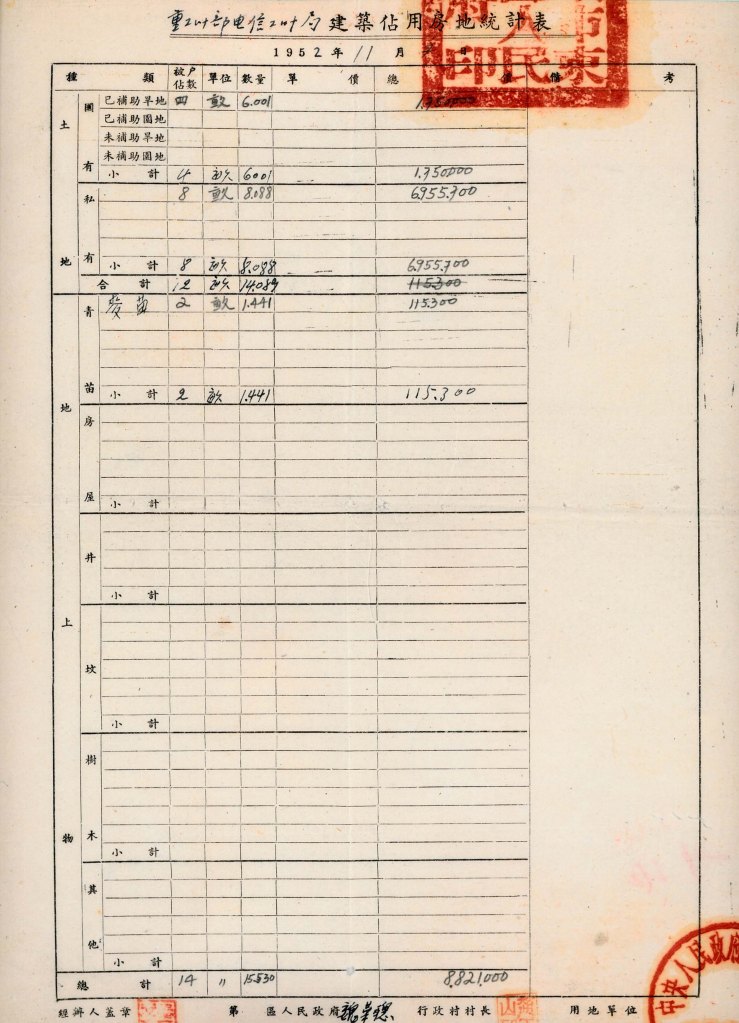 重工业部电信工业局建築佔用房地統計表
1952年11月 日
種類 被佔戶數 單位 數量 單價 總價 備考
土地
國有
已補助旱地 四 畝 6.001 1.350000
已補助園地
未補助旱地
未補助園地
小計 4 畝 6001 1.350000
私有
8 畝 8.088 6955.700
小計 8 畝 8.088 6955.700
合計 12 畝 14.089 115.300
地上物
青苗
麥苗 2 畝 1.441 115.300
小計 2 畝 1.441 115.300
房屋
小計
井
小計
坟
小計
樹木
小計
其他
小計
總計 14 〃 15.530 8.821,000
經辦人蓋章 第 區人民政府 行政村村長 用地單位
人民
印
中央人民政府